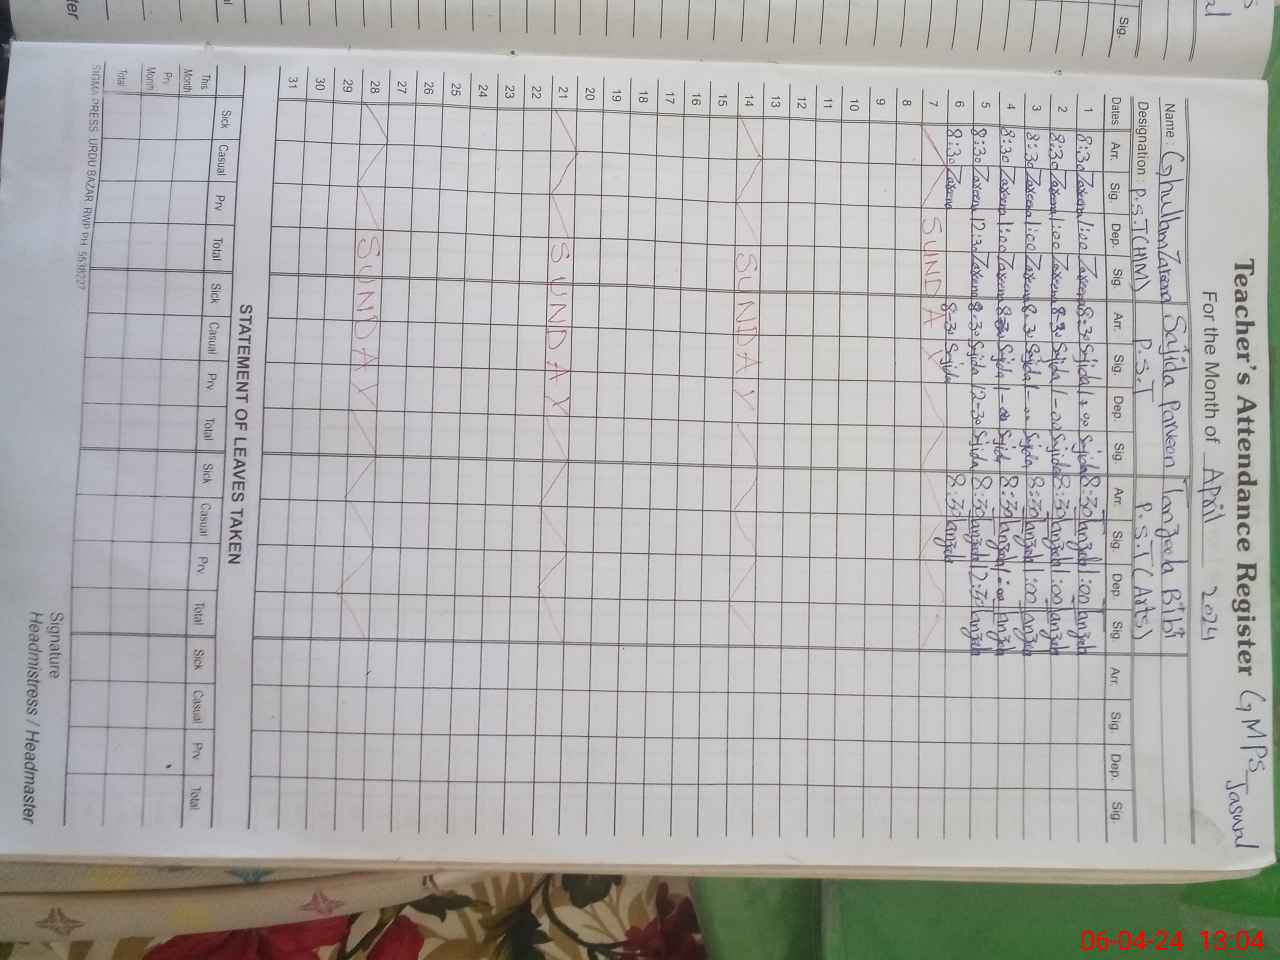 Teacher's Attendance Register GMPS Jaswal
For the Month of April 2024
Name : Ghulam Zareena Sajida Parveen Tanzeela Bibi
Designation : P.S.T (H/M) P.S.T P.S.T (Arts)
Dates Arr. Sig. Dep. Sig. Arr. Sig. Dep. Sig. Arr. Sig. Dep Sig. Arr. Sig. Dep. Sig.
1 8:30 Zareena 1:00 Zareena 8:30 Sajida 1:00 Sajida 8:30 Tanzeela 1:00 Tanzeela
2 8:30 Zareena 1:00 Zareena 8:30 Sajida 1-00 Sajida 8:30 Tanzeela 1:00 Tanzeela
3 8:30 Zareena 1:00 Zareena 8:30 Sajida 1-00 Sajida 8:30 Tanzeela 1:00 Tanzeela
4 8:30 Zareena 1:00 Zareena 8:30 Sajida 1-00 Sajida 8:30 Tanzeela 1:00 Tanzeela
5 8:30 Zareena 12:30 Zareena 8:30 Sajida 12-30 Sajida 8:30 Tanzeela 12:30 Tanzeela
6 8:30 Zareena 8:30 Sajida 8:30 Tanzeela
7 SUNDAY
8
9
10
11
12
13
14 SUNDAY
15
16
17
18
19
20
21 SUNDAY
22
23
24
25
26
27
28 SUNDAY
29
30
31
STATEMENT OF LEAVES TAKEN
Sick Casual Prv Total Sick Casual Prv Total Sick Casual Prv Total Sick Casual Prv Total
This Month
Prv Month
Total
SIGMA PRESS URDU BAZAR RWP PH: 5538227
Signature
Headmistress / Headmaster
Sig.
06-04-24 13:04